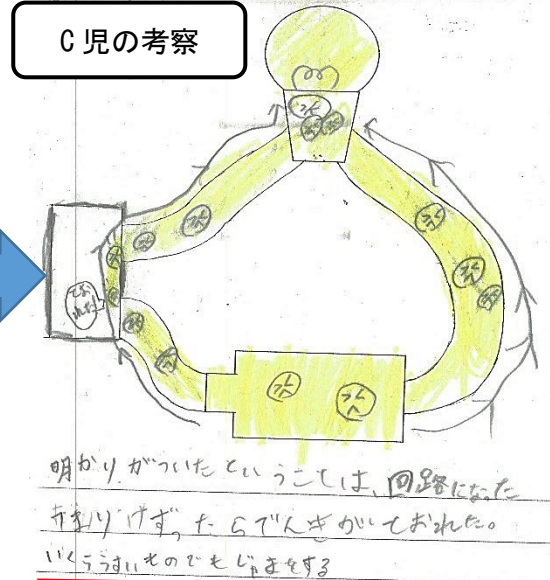 C児の考察
とおれた!
明かりがついたということは、回路になった
けずったらでんきがとおれた。
いくらうすいものでもじゃまをする